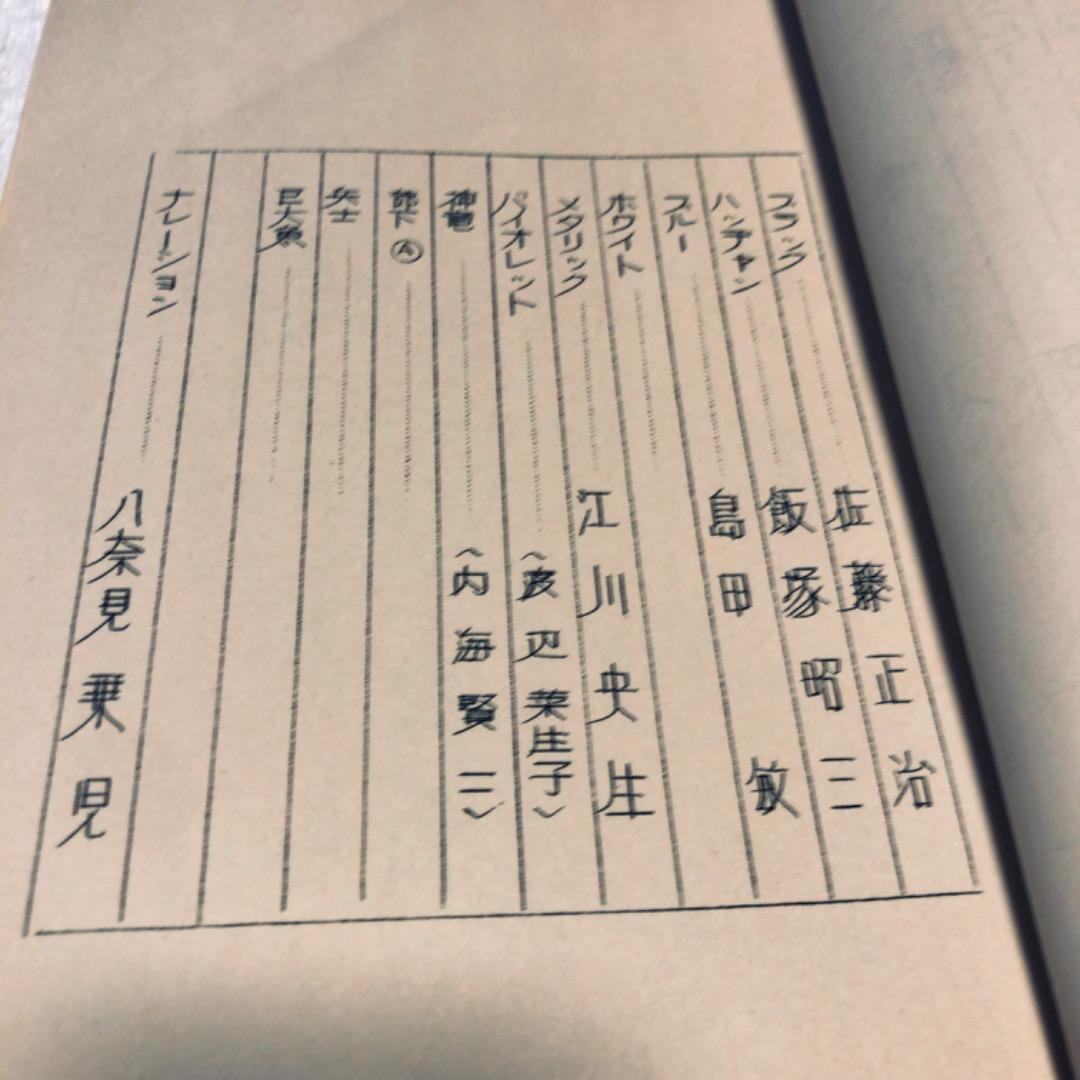 ブラック 佐藤正治
ハッチャン 飯塚昭三
ブルー 島田敏
ホワイト
メタリック 江川央生
バイオレット (渡辺菜生子)
神竜 (内海賢二)
部下Ⓐ
兵士
巨大魚
ナレーション 八奈見乗児